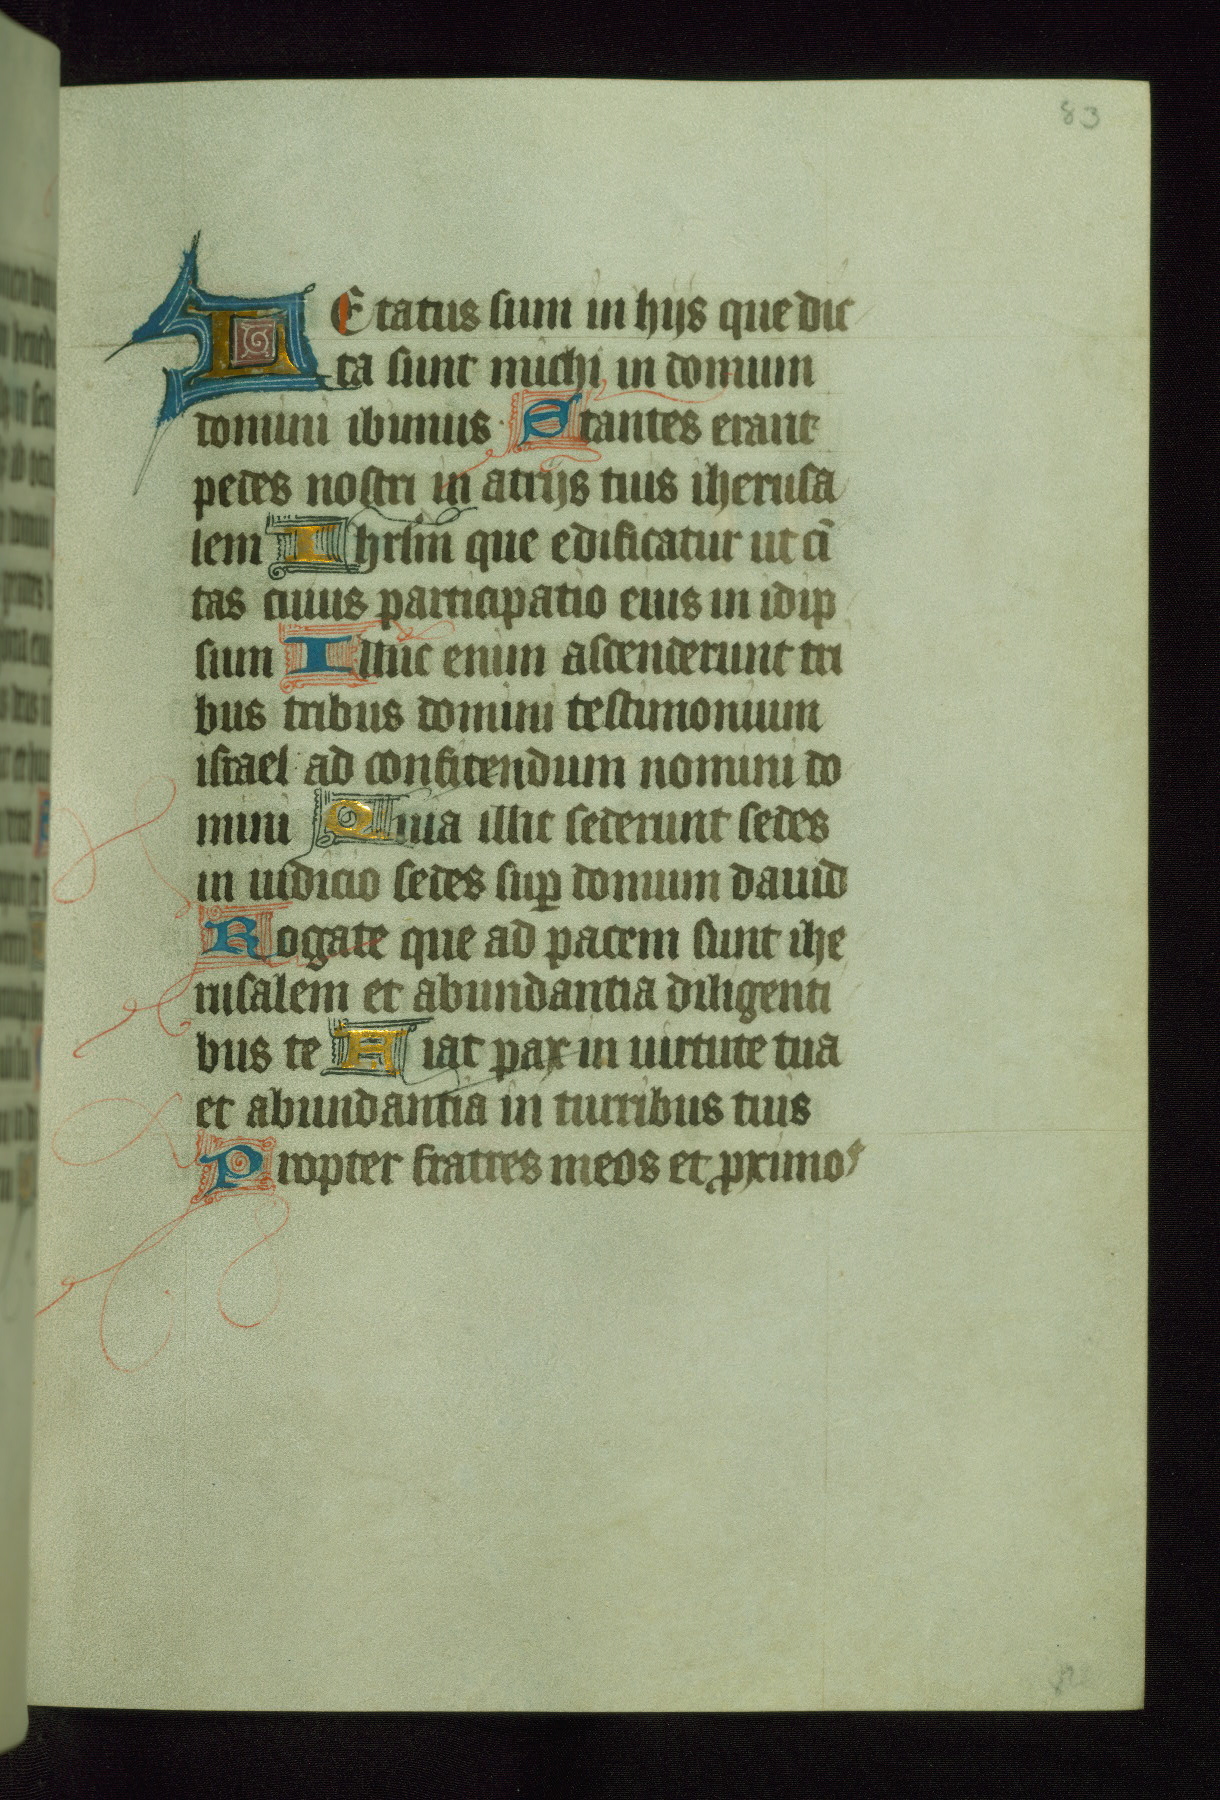 83
LEtatus sum in hijs que dic
ta sunt michi in domum
domini ibimus Stantes erant
pedes nostri in atrijs tuis iherusa
lem Ihrlm̄ que edificatur ut ci
tas cuius participatio eius in idip
sum Illuc enim ascenderunt tri
bus tribus domini testimonium
israel ad confitendum nomini do
mini Quia illic sederunt sedes
in iudicio sedes sup̲ domum dauid
Rogate que ad pacem sunt ihe
rusalem et abundantia diligenti
bus te Fiat pax in uirtute tua
et abundantia in turribus tuis
Propter fratres meos et ꝓximos